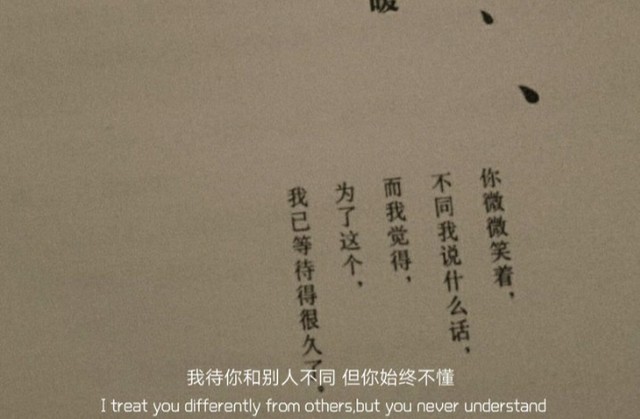 暖
你微微笑着，
不同我说什么话，
而我觉得，
为了这个，
我已等待得很久了。
我待你和别人不同 但你始终不懂
I treat you differently from others,but you never understand